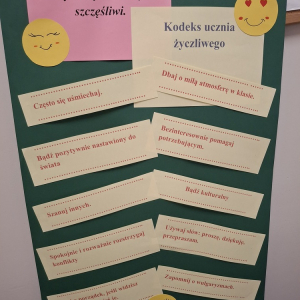 szczęśliwi.
Kodeks ucznia
życzliwego
Często się uśmiechaj.
Dbaj o miłą atmosferę w klasie.
Bądź pozytywnie nastawiony do
świata
Bezinteresownie pomagaj
potrzebującym.
Szanuj innych.
Bądź kulturalny
Spokojnie i rozważnie rozstrzygaj
konflikty
Używaj słów: proszę, dziękuję,
przepraszam.
porządek, jeśli widzisz
Zapomnij o wulgaryzmach.